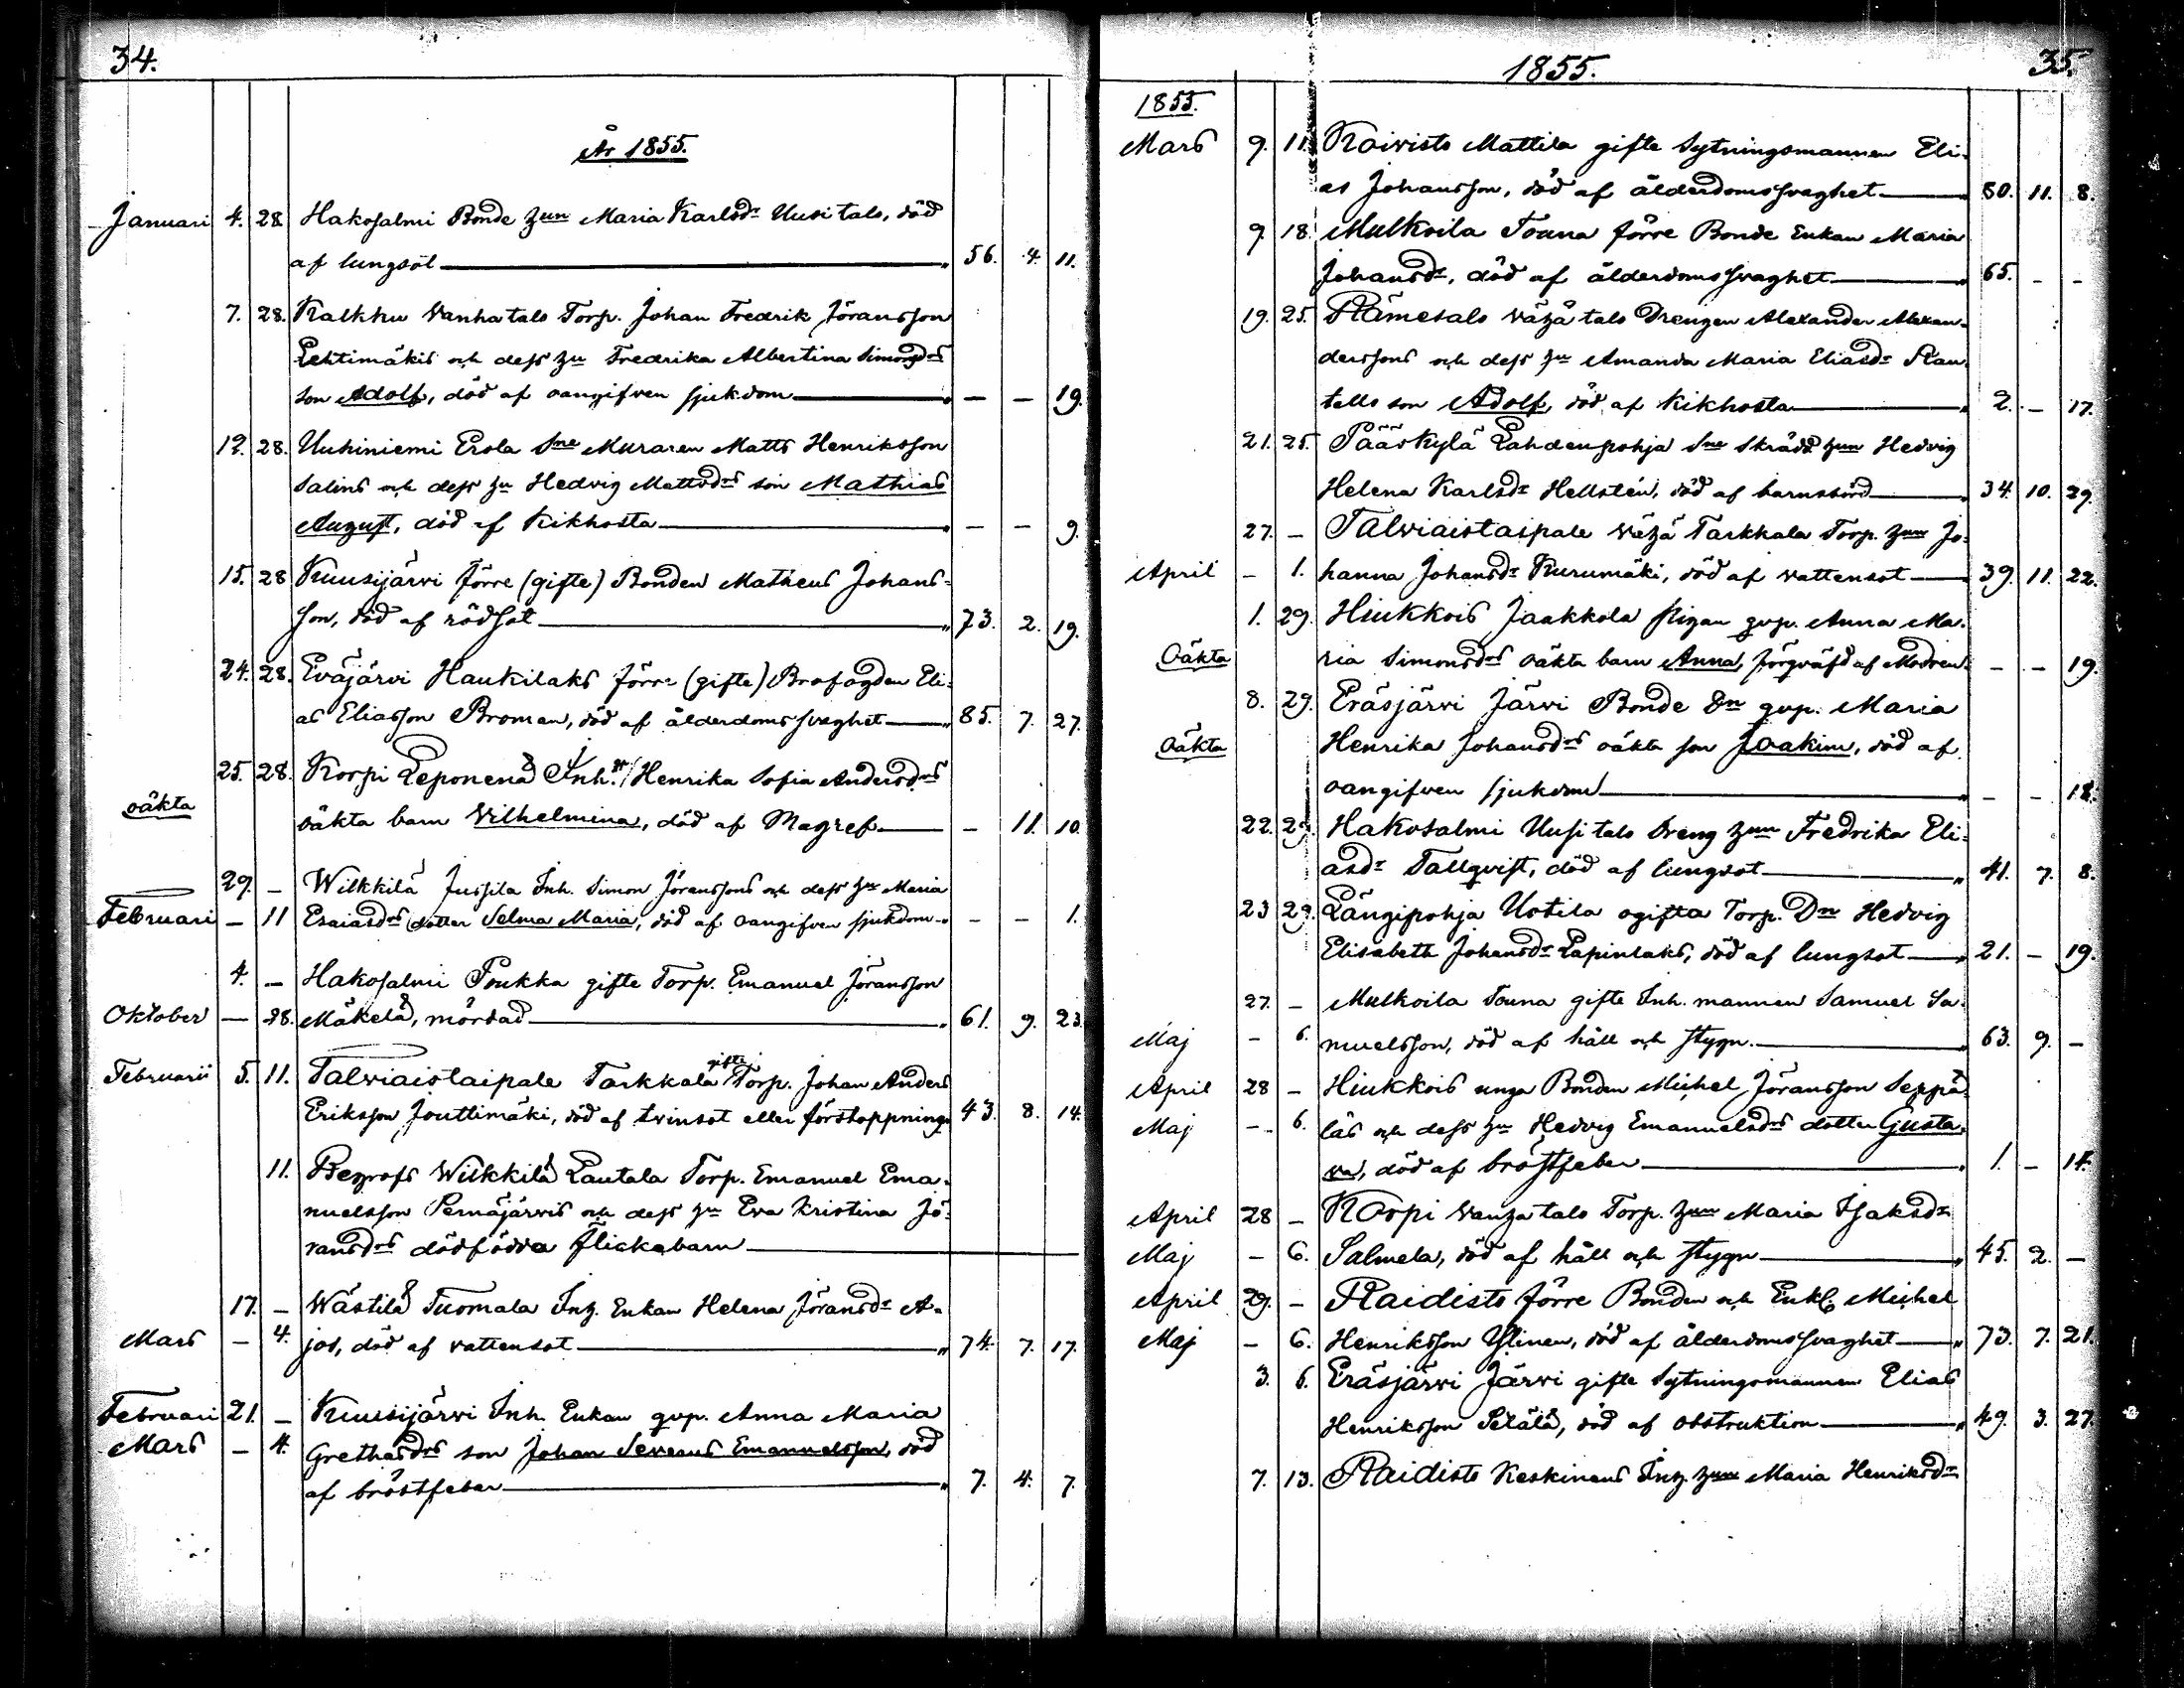 34.
År 1855.
Januari 4. 28. Hakosalmi Bonde hun Maria Karlsdr Uusitalo, död
af lungsot 56. 4. 11.
7. 28. Kalkku Wanhatalo Torp. Johan Fredrik Jöransson
Lehtimäkis och dess hu Fredrika Albertina Simonsdrs
son Adolf, död af oangifven sjukdom — — 19.
12. 28. Uuhiniemi Erola Sne Muraren Matts Henriksson
Salins och dess hu Hedvig Mattsdrs son Mathias
August, död af Kikhosta — — 9.
15. 28 Kuusijärvi förre (gifte) Bonden Matheus Johans-
son, död af rödsot 73. 2. 19.
24. 28. Eväjärvi Haukilaks förre (gifte) Brofogden Eli-
as Eliasson Broman, död af ålderdomssvaghet 85. 7. 27.
25. 28. Korpi Leponens Inh. Henrika Sofia Andersdrs
oäkta
oäkta barn Wilhelmina, död af Magref — 11. 10.
29. — Wilkkilä Jussila Inh. Simon Jöranssons och dess hu Maria
Februari — 11 Esaiasdrs dotter Selma Maria, död af oangifven sjukdom — — 1.
4. — Hakosalmi Poukka gifte Torp. Emanuel Jöransson
Oktober — 28. Mäkelä, mördad 61. 9. 23.
Februarii 5. 11. Talviaistaipale Tarkkala gifte Torp. Johan Anders
Eriksson Jouttimäki, död af tvinsot eller förstoppning 43. 8. 14.
11. Begrofs Wilkkilä Lautala Torp. Emanuel Ema-
nuelsson Pernäjärvis och dess hu Eva Kristina Jö-
ransdrs dödfödda flickebarn
17. — Wästilä Tuomala Inh. Enkan Helena Jöransdr A-
Mars — 4. jos, död af vattensot 74. 7. 17.
Februari 21. — Kuusijärvi Inh. Enkan qvp. Anna Maria
Mars — 4. Grethasdrs son Johan Sereaus Emanuelsson, död
af bröstfeber 7. 4. 7.
1855. 35.
1855.
Mars 9. 11. Koivisto Mattila gifte Sytningsmannen Eli-
as Johansson, död af ålderdomssvaghet 80. 11. 8.
9. 18. Mulkoila Touna förre Bonde Enkan Maria
Johansdr, död af ålderdomssvaghet 65. — —
19. 25. Rämesalo Vähä talo Drengen Alexander Alexan-
derssons och dess hu Amanda Maria Eliasdr Ran-
tells son Adolf, död af Kikhosta 2. — 17.
21. 25. Pääskylä Lahdenpohja Sne Skrädd hun Hedvig
Helena Karlsdr Hellstén, död af barnsbörd 34. 10. 29.
27. — Talviaistaipale Vähä Tarkkala Torp. hun Jo-
April — 1. hanna Johansdr Kurumäki, död af vattensot 39. 11. 22.
1. 29. Hiukkois Jaakkola Pigan qvp. Anna Ma-
Oäkta ria Simonsdrs oäkta barn Anna, förqväfd af Modren — — 19.
8. 29. Eräsjärvi Järvi Bonde Dn qvp. Maria
Oäkta Henrika Johansdrs oäkta son Joakim, död af
oangifven sjukdom — — 18.
22. 29. Hakosalmi Uusitalo Dreng hun Fredrika Eli-
asdr Tallqvist, död af lungsot 41. 7. 8.
23 29. Längipohja Uotila ogifta Torp. Dn Hedvig
Elisabeth Johansdr Lapinlaks, död af lungsot 21. — 19.
27. — Mulkoila Touna gifte Inh. mannen Samuel Sa-
Maj — 6. muelsson, död af håll och stygn. 63. 9. —
April 28 — Hiukkois unga Bonden Michel Jöransson Seppä-
Maj — 6. läs och dess hu Hedvig Emanuelsdrs dotter Gusta-
va, död af bröstfeber 1. — 14.
April 28 — Korpi Wanha talo Torp. hun Maria Isaksdr
Maj — 6. Salmela, död af håll och stygn 45. 2. —
April 29. — Raidisto förre Bonden och Enkl. Michel
Maj — 6. Henriksson Ylinen, död af ålderdomssvaghet 73. 7. 21.
3. 6. Eräsjärvi Järvi gifte Sytningsmannen Elias
Henriksson Setälä, död af obstruktion 49. 3. 27.
7. 13. Raidisto Keskinens Inh. hun Maria Henriksdr